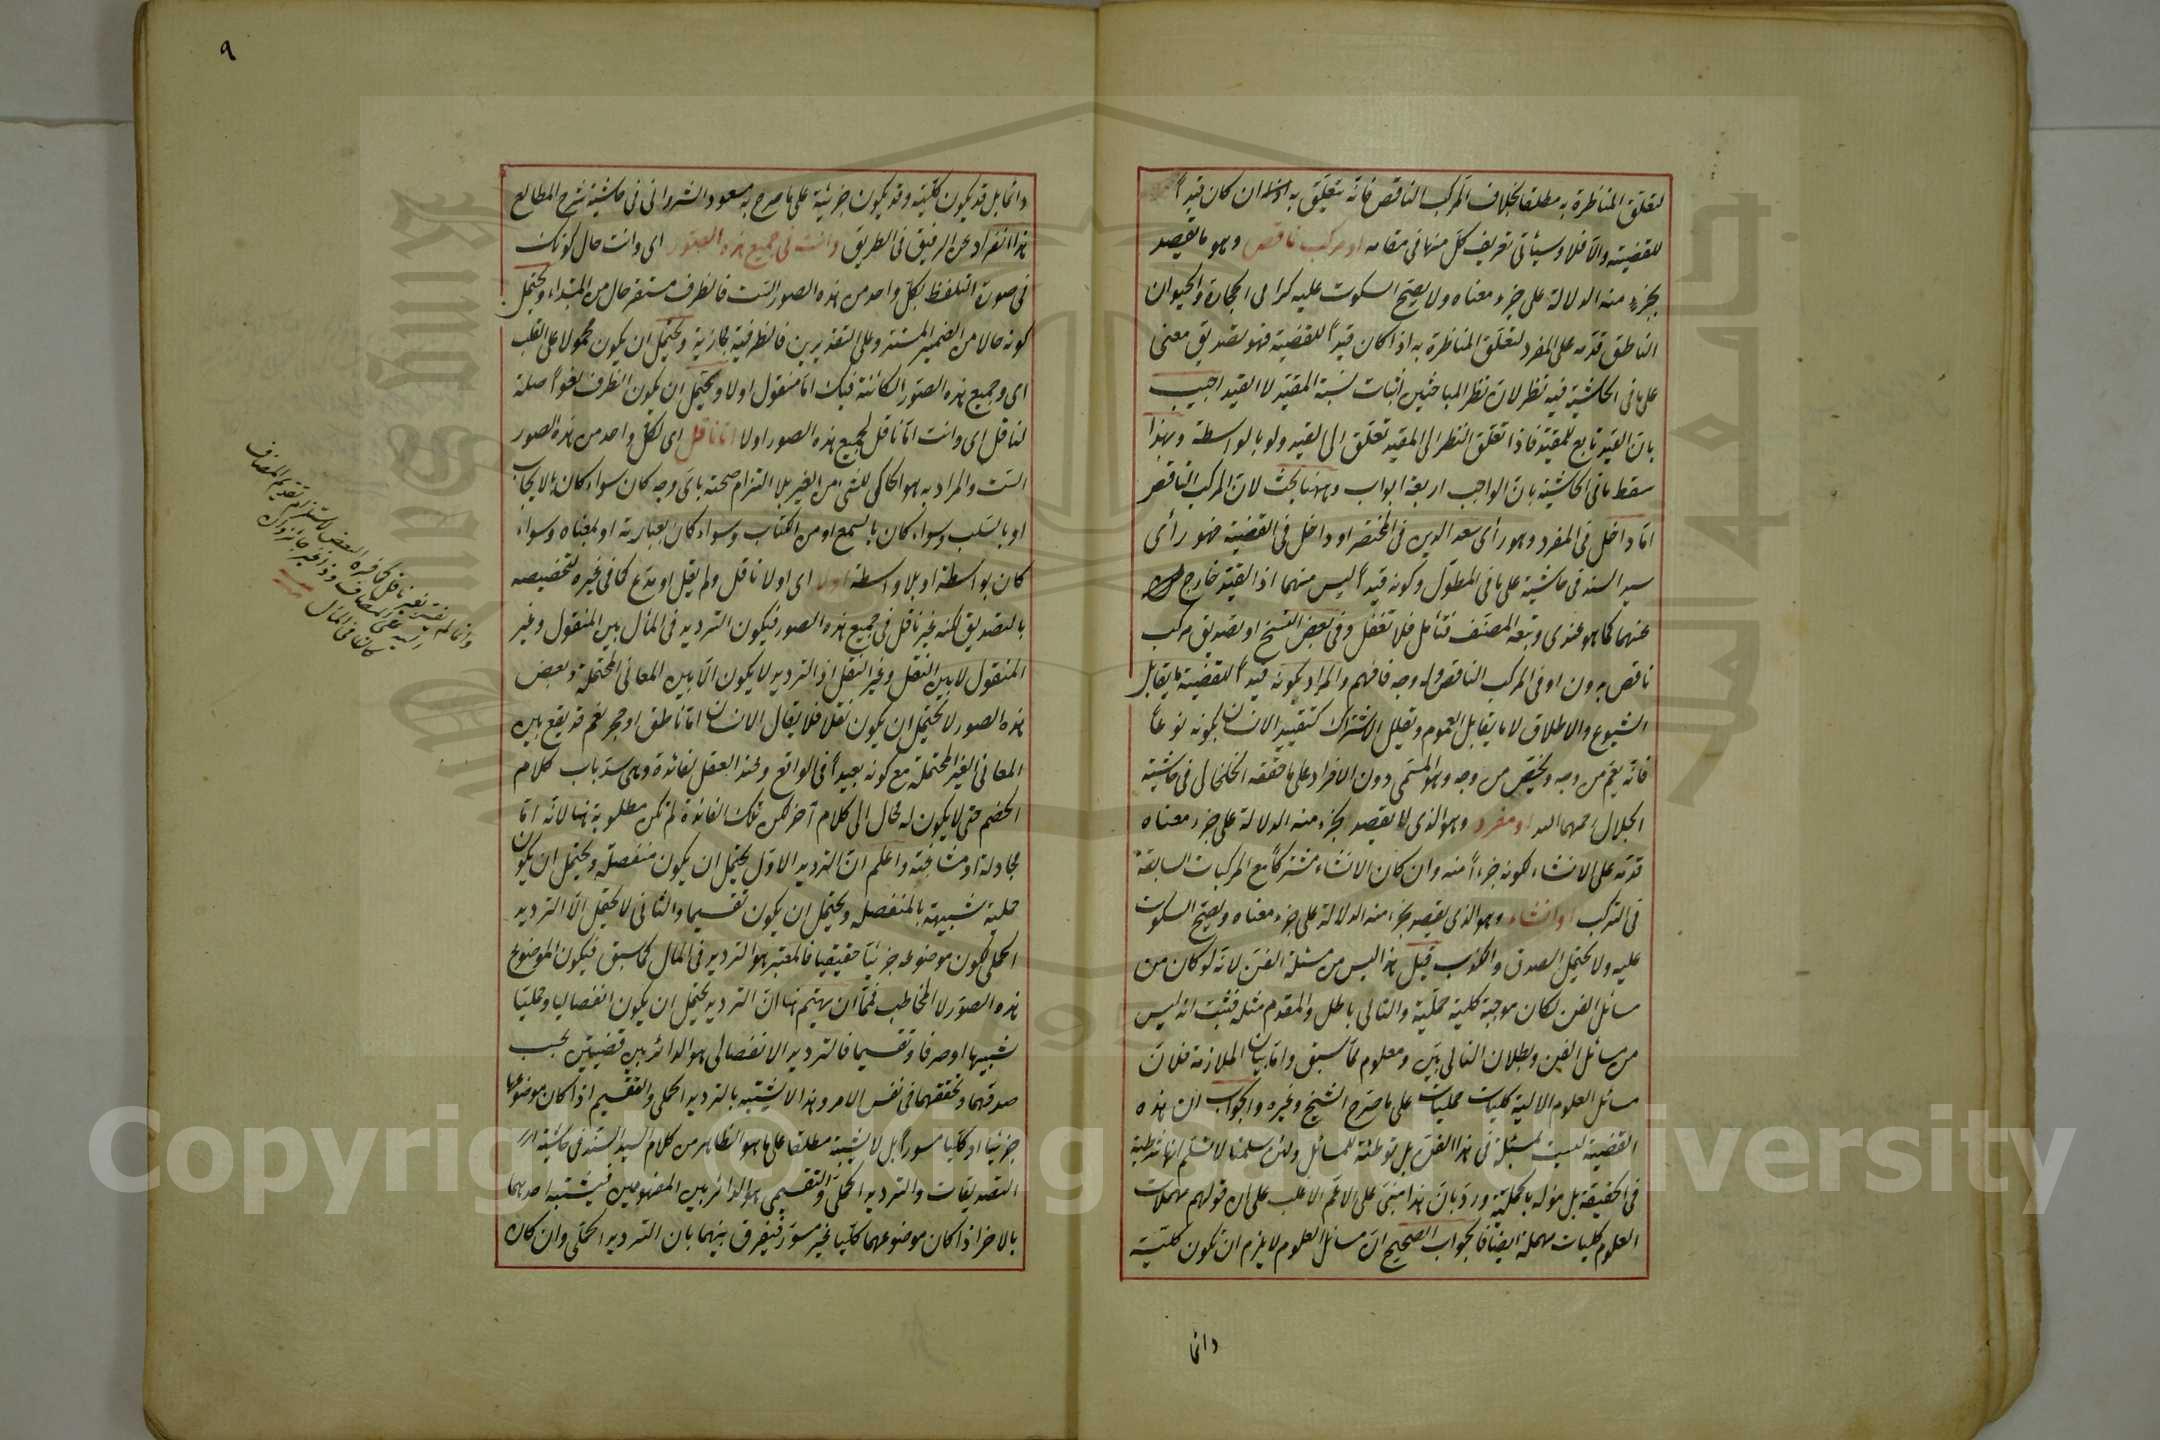 لتعلق المناظرة به مطلقا بخلاف المركب الناقص فانه يتعلق به اذا ان كان قيدًا
للقضية والا فلا وسيأتى تعريف كل منها فى مقامه او مركب ناقص وهو ما يقصد
بجزء منه الدلالة على جزء معناه ولا يصح السكوت عليه كرامى الحجارة والحيوان
الناطق قدمه على المفرد لتعلق المناظرة به اذا كان قيدًا للقضية فهو تصديق معنى
على ما فى الحاشية فيه نظر لان نظر المباحثين اثبات نسبة المقيد لا القيد اجيب
بان القيد تابع للمقيد فاذا تعلق النظر الى المقيد تعلق الى القيد ولو بالواسطة وبهذا
سقط ما فى الحاشية بان الواجب اربعة ابواب وههنا بحث لان المركب الناقص
اما داخل فى المفرد وهو رأى سعد الدين فى المختصر او داخل فى القضية فهو رأى
سيد السند فى حاشية على ما فى المطول وكونه قيدًا ليس منهما اذ القيد خارج
عنهما كما هو عندى وتبعه المصنف فتأمل فلا تغفل وفى بعض النسخ او تصديق مركب
ناقص بدون او فى المركب الناقص وله وجه فافهم والمراد بكونه قيدًا للقضية ما يقابل
الشيوع والاطلاق لا ما يقابل العموم وتقليل الاشتراك كتقييد الانسان بكونه نوعًا
فانه يعم من وجه ويختص من وجه وهو المسمى دون الافراد على ما حققه الخلخال فى حاشية
الجلال رحمهما الله او مفرد وهو الذى لا يقصد بجزء منه الدلالة على جزء معناه
قدمه على الانشاء لكونه جزءًا منه وان كان الانشاء مشتركًا مع المركبات السابقة
فى التركب او انشاء وهو الذى يقصد بجزء منه الدلالة على جزء معناه ويصح السكوت
عليه ولا يحتمل الصدق والكذب قيل هذا ليس من مسئلة الفن لانه لو كان من
مسائل الفن لكان موجبة كلية حملية والتالى باطل والمقدم مثله فثبت انه ليس
من مسائل الفن وبطلان التالى بين ومعلوم مما سبق واما بيان الملازمة فلان
مسائل العلوم الآلية كليات حمليات على ما صرح الشيخ وغيره والجواب ان هذه
القضية ليست بمسئلة فى هذا الفن بل توطئة للمسائل ولئن سلمنا لا نسلم انها شرطية
فى الحقيقة بل مؤله بالحملية ورد بان هذا مبنى على الاعم الاغلب على ان قولهم مهملات
العلوم كليات مهملة ايضا فالجواب الصحيح ان مسائل العلوم لا يلزم ان تكون كلية
دائما
٩
دائما بل قد يكون كلية وقد يكون جزئية على ما صرح به مسعود الشروانى فى حاشية شرح المطالع
هذا انفراد عن الرفيق فى الطريق وانت فى جميع هذه الصور اى وانت حال كونك
فى صورة التلفظ بكل واحد من هذه الصور الست فالظرف مستقر حال من المبتداء ويحتمل
كونه حالا من الضمير المستتر وعلى التقديرين فالظرفية مجازية ويحتمل ان يكون محمولا على القلب
اى وجميع هذه الصور الكائنة فيك اما منقول اولا ويحتمل ان يكون الظرف لغوًا صلة
لناقل اى وانت اما ناقل لجميع هذه الصور اولا اما ناقل اى لكل واحد من هذه الصور
الست والمراد به هو الحاكى للشئ من الغير بلا التزام صحته باى وجه كان سواء كان بالايجاب
او بالسلب وسواء كان بالسمع او من الكتاب وسواء كان بعبارته او بمعناه وسواء
كان بواسطة او بلا واسطة اولا اى اولا ناقل ولم يقل او مدع كما فى غيره لتخصيصه
بالتصديق لكنه غير ناقل فى جميع هذه الصور فيكون الترديد فى المأل بين المنقول وغير
المنقول لا بين النقل وغير النقل اذ الترديد لا يكون الا بين المعانى المحتملة وبعض
هذه الصور لا يحتمل ان يكون نقلا فلا يقال الانسان اما ناطق او حجر نعم قد يقع بين
المعانى الغير المحتملة مع كونه بعيدًا فى الواقع وعند العقل لفائدة وهى سد باب كلام
الخصم حتى لا يكون له مجال الى كلام آخر لكن تلك الفائدة لم تكن مطلوبة هنا لانه اما
مجادلة او مشاغبة واعلم ان الترديد الاول يحتمل ان يكون منفصلة ويحتمل ان يكون
حملية شبيهة بالمنفصلة ويحتمل ان يكون تقسيما والثانى لا يحتمل الا الترديد
الحملى لكون موضوعه جزئيًا حقيقيا فالمعتبر هو الترديد فى المال كما سبق فيكون الموضوع
هذه الصور لا المخاطب فمما ان يهتم هنا ان الترديد يحتمل ان يكون انفصاليا وحمليًا
شبيها او صرفا وتقسيما فالترديد الانفصالى هو الدائر بين قضيتين بحسب
صدقهما وتحققهما فى نفس الامر وهذا لا يشتبه بالترديد الحملى والتقسيم اذا كان موضوعها
جزئيًا او كليًا مسورًا بل لا يشبه مطلقا على ما هو الظاهر من كلام السيد السند فى حاشية
التصديقات والترديد الحملى والتقسيمى هو الدائر بين المفهومين فيشتبه احدهما
بالاخر اذا كان موضوعهما كليا غير مسور فيفرق بينهما بان الترديد الحملى وان كان